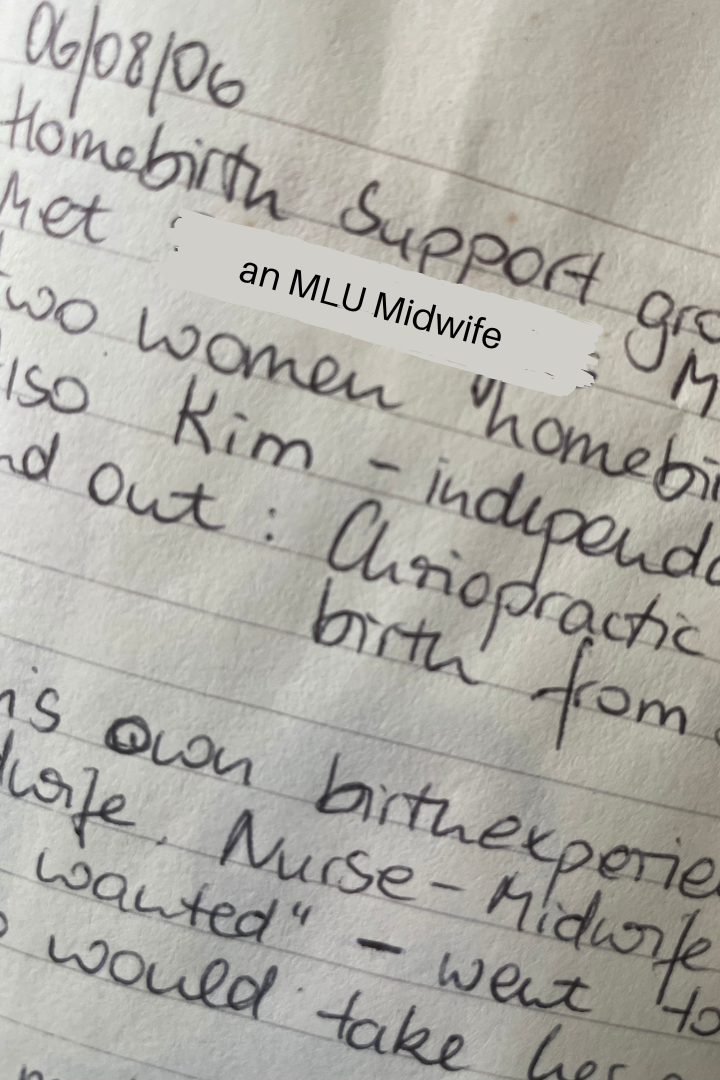 06/08/06
Homebirth Support gro
Met an MLU Midwife M
two women "homebir
also Kim - independa
nd out : Chriopractic
birth from
is own birthexperie
dwife. Nurse-Midwife
wanted" - went to
would take her